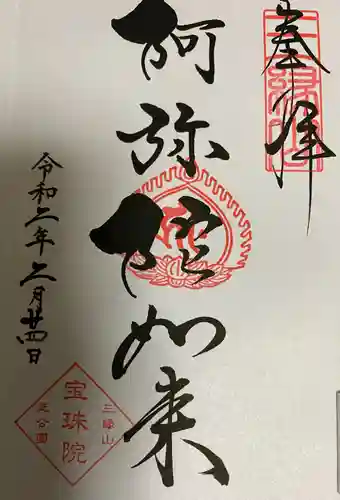 奉拝
阿弥陀如来
令和二年二月廿四日
三縁山
宝珠院
芝公園